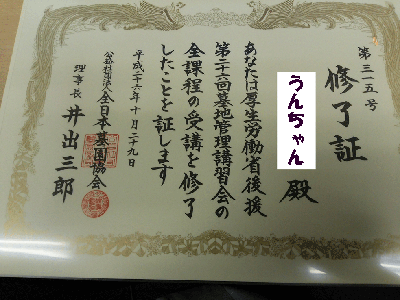 第三一五号
修了証
うんちゃん 殿
あなたは厚生労働省後援
第二十六回墓地管理講習会の
全課程の受講を修了
したことを証します
平成二十六年十月二十九日
公益社団法人全日本墓園協会
理事長 井出三郎